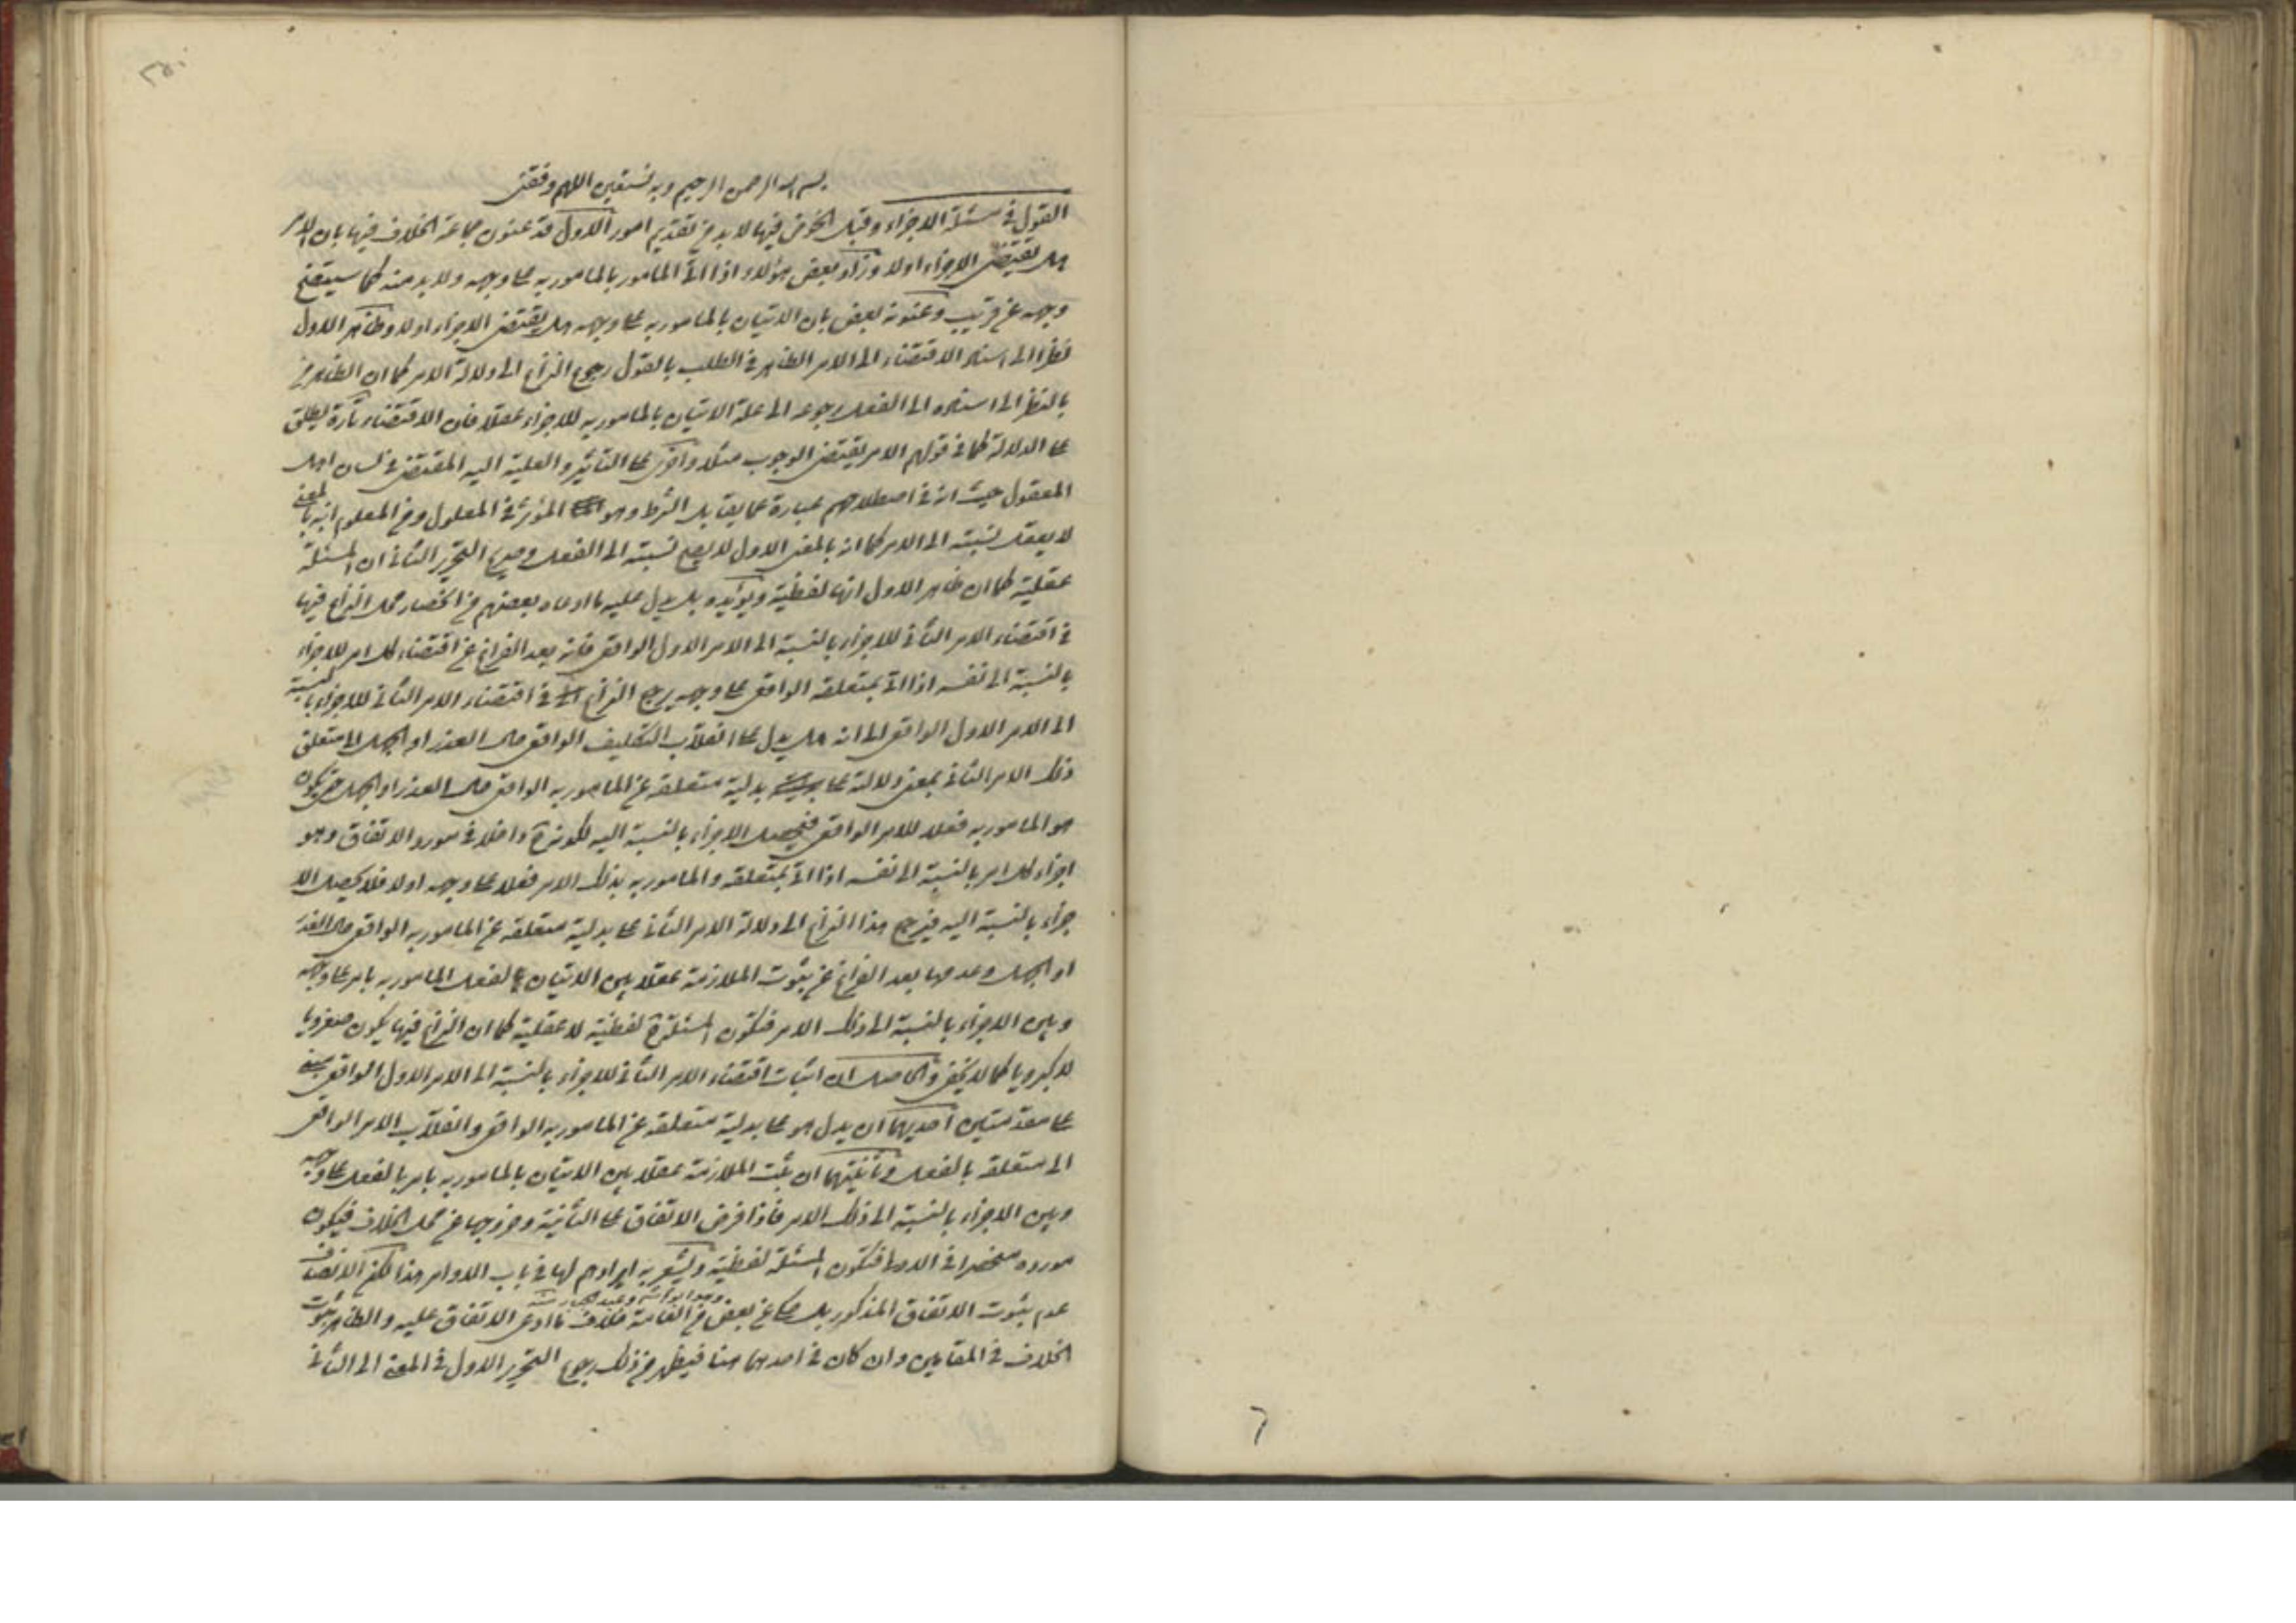 بسم الله الرحمن الرحيم وبه نستعين اللهم وفقني
القول في مسئلة الاجزاء وقبل الخوض فيها لا بد من تقديم امور الاول قد عنون جماعة الخلاف فيها بان الامر
هل يقتضي الاجزاء او لا وزاد بعض هؤلاء اذا اتى المأمور بالمأمور به على وجهه ولا بد منه كما سيتضح
وجهه عن قريب وعنونه بعض بان الاتيان بالمأمور به على وجهه هل يقتضي الاجزاء او لا وظاهر الاول
نظرا الى اسناد الاقتضاء الى الامر الظاهر في الطلب بالقول رجوع النزاع الى دلالة الامر كما ان الظاهر من
بالنظر الى اسناده الى الفعل رجوعه الى علة الاتيان بالمأمور به للاجزاء عقلا فان الاقتضاء تارة يطلق
على الدلالة كما في قولهم الامر يقتضي الوجوب مثلا واخرى على التأثير والعلية اليه المقتضي في لسان اهل
المعقول حيث انه في اصطلاحهم عبارة عما يقابل الشرط وهو المؤثر في المعلول ومن المعلوم انه بالمعنى
لا يعقل نسبته الى الامر كما انه بالمعنى الاول لا يصح نسبته الى الفعل وصريح التحرير الثاني ان المسئلة
عقلية كما ان ظاهر الاول انها لفظية ويؤيده بل يدل عليه ما ادعاه بعضهم من انحصار محل النزاع فيها
في اقتضاء الامر الثاني للاجزاء بالنسبة الى الامر الاول الواقعي فانه بعد الفراغ عن اقتضاء كل امر للاجزاء
بالنسبة الى نفسه اذا اتى بمتعلقه الواقعي على وجهه يرجع النزاع في اقتضاء الامر الثاني للاجزاء بالنسبة
الى الامر الاول الواقعي الى انه هل يدل على انقلاب التكليف الواقعي حال العذر او الجهل الى متعلق
ذلك الامر الثاني بمعنى دلالته على بدلية متعلقه عن المأمور به الواقعي حال العذر او الجهل حتى يكون
هو المأمور به فعلا للامر الواقعي فيحصل الاجزاء بالنسبة اليه لكونه ح داخلا في مورد الاتفاق وهو
اجزاء كل امر بالنسبة الى نفسه اذا اتى بمتعلقه والمأمور به بذلك الامر فعلا على وجهه او لا فلا يحصل الا
جزاء بالنسبة اليه فيرجع هذا النزاع الى دلالة الامر الثاني على بدلية متعلقه عن المأمور به الواقعي حال العذر
او الجهل وعدمها بعد الفراغ عن ثبوت الملازمة عقلا بين الاتيان بالفعل المأمور به بامر على وجهه
وبين الاجزاء بالنسبة الى ذلك الامر فتكون المسئلة ح لفظية لا عقلية كما ان النزاع فيها يكون صغرويا
لا كبرويا كما لا يخفى والحاصل ان اثبات اقتضاء الامر الثاني للاجزاء بالنسبة الى الامر الاول الواقعي مبني
على مقدمتين احديهما ان يدل هو على بدلية متعلقه عن المأمور به الواقعي وانقلاب الامر الواقعي
الى متعلقه بالفعل وثانيتهما ان يثبت الملازمة عقلا بين الاتيان بالمأمور به بامر بالفعل على وجهه
وبين الاجزاء بالنسبة الى ذلك الامر فاذا فرض الاتفاق على الثانية وخروجها عن محل الخلاف فيكون
مورده منحصرا في الاولى فتكون المسئلة لفظية ويشعر به ايرادهم لها في باب الاوامر هذا لكن الانصاف
عدم ثبوت الاتفاق المذكور بل حكي عن بعض من العامة خلاف ما ادعى الاتفاق عليه والظاهر ثبوت
الخلاف في المقامين وان كان في احدهما هنا فيظهر من ذلك رجوع التحرير الاول في المعنى الى الثاني